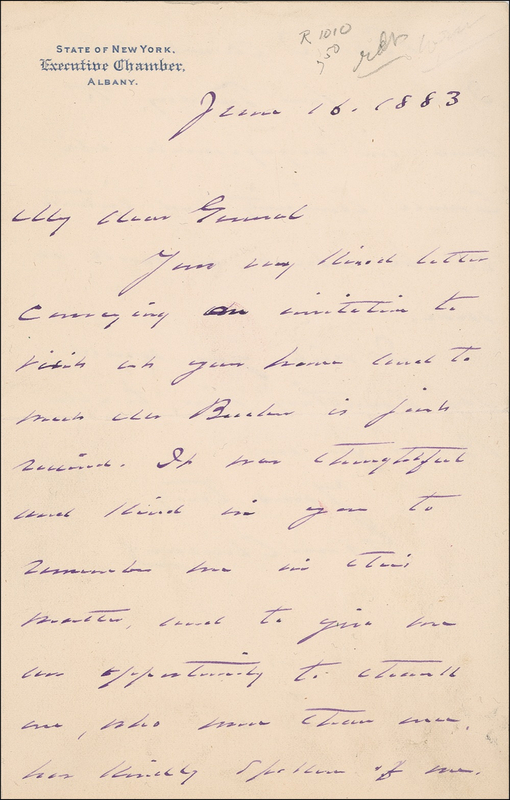 R 1010
750
STATE OF NEW YORK.
Executive Chamber,
ALBANY.
June 16. 1883
My dear General
Your very kind letter
conveying an invitation to
visit at your home and to
meet Mr Beecher is just
received. It was thoughtful
and kind in you to
remember me in this
matter, and to give me
an opportunity to thank
one, who more than once,
has kindly spoken of me.